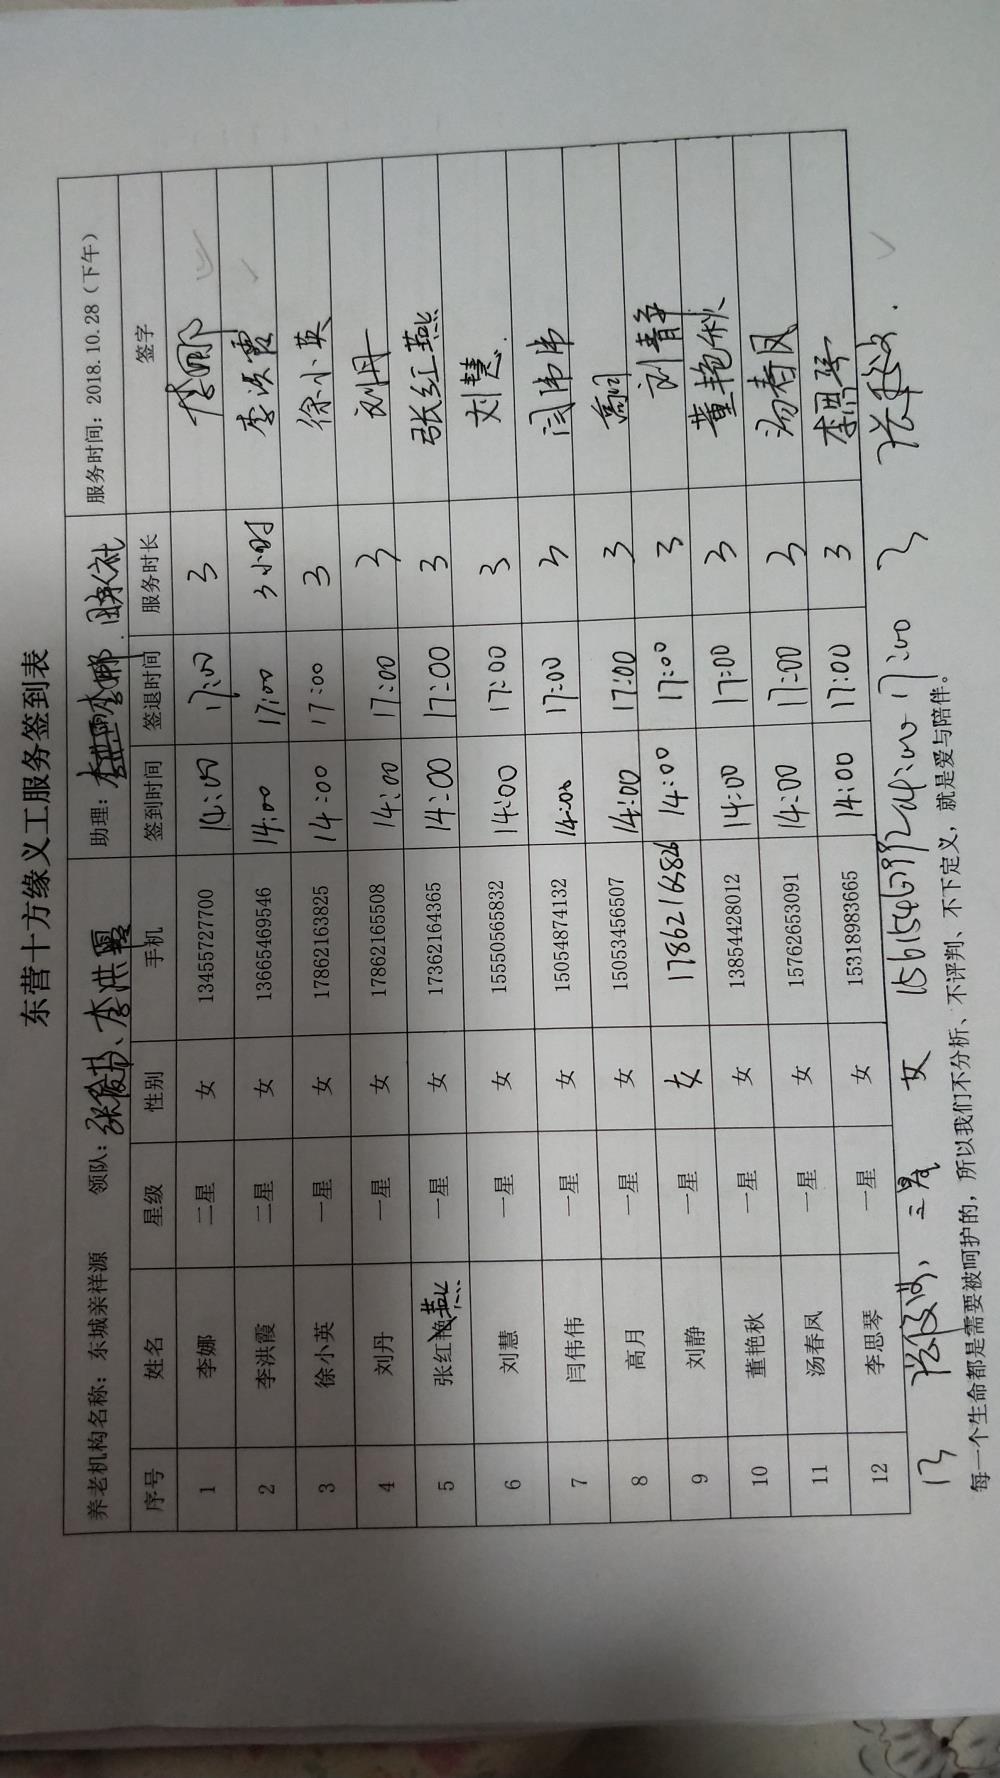 东营十方缘义工服务签到表
养老机构名称：东城亲祥源 领队： 、李洪霞 助理： 李娜 服务时间：2018.10.28（下午）
序号 姓名 星级 性别 手机 签到时间 签退时间 服务时长 签字
1 李娜 二星 女 13455727700 14:00 17:00 3 李娜
2 李洪霞 二星 女 13665469546 14:00 17:00 3小时 李洪霞
3 徐小英 一星 女 17862163825 14:00 17:00 3 徐小英
4 刘丹 一星 女 17862165508 14:00 17:00 3 刘丹
5 张红燕 一星 女 17362164365 14:00 17:00 3 张红燕
6 刘慧 一星 女 15550565832 14:00 17:00 3 刘慧.
7 闫伟伟 一星 女 15054874132 14:00 17:00 3 闫伟伟
8 高月 一星 女 15053456507 14:00 17:00 3 高月
9 刘静 一星 女 17862165826 14:00 17:00 3 刘青争
10 董艳秋 一星 女 13854428012 14:00 17:00 3 董艳秋
11 汤春凤 一星 女 15762653091 14:00 17:00 3 汤春凤
12 李思琴 一星 女 15318983665 14:00 17:00 3 李思琴
13 三星 女 14:00 17:00 3
每一个生命都是需要被呵护的，所以我们不分析、不评判、不下定义，就是爱与陪伴。